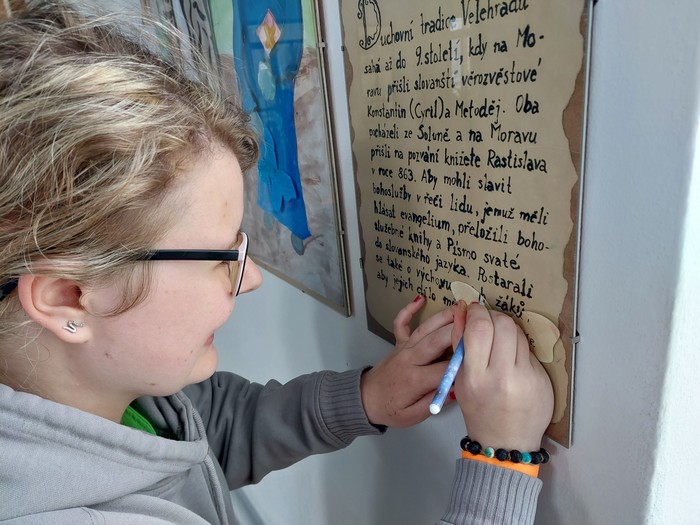 Duchovní tradice Velehradu
sahá až do 9. století, kdy na Mo-
ravu přišli slovanští věrozvěstové
Konstantin (Cyril) a Metoděj. Oba
pocházeli ze Soluně a na Moravu
přišli na pozvání knížete Rastislava
v roce 863. Aby mohli slavit
bohoslužby v řeči lidu, jemuž měli
hlásat evangelium, přeložili boho-
služebné knihy a Písmo svaté
do slovanského jazyka. Postarali
se také o výchovu žáků,
aby jejich dílo